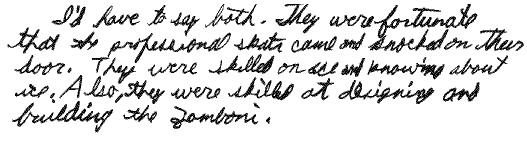 I'd have to say both. They were fortunate
that the professional skate came and knocked on their
door. They were skilled on ice and knowing about
ice. Also, they were skilled at designing and
building the zamboni.